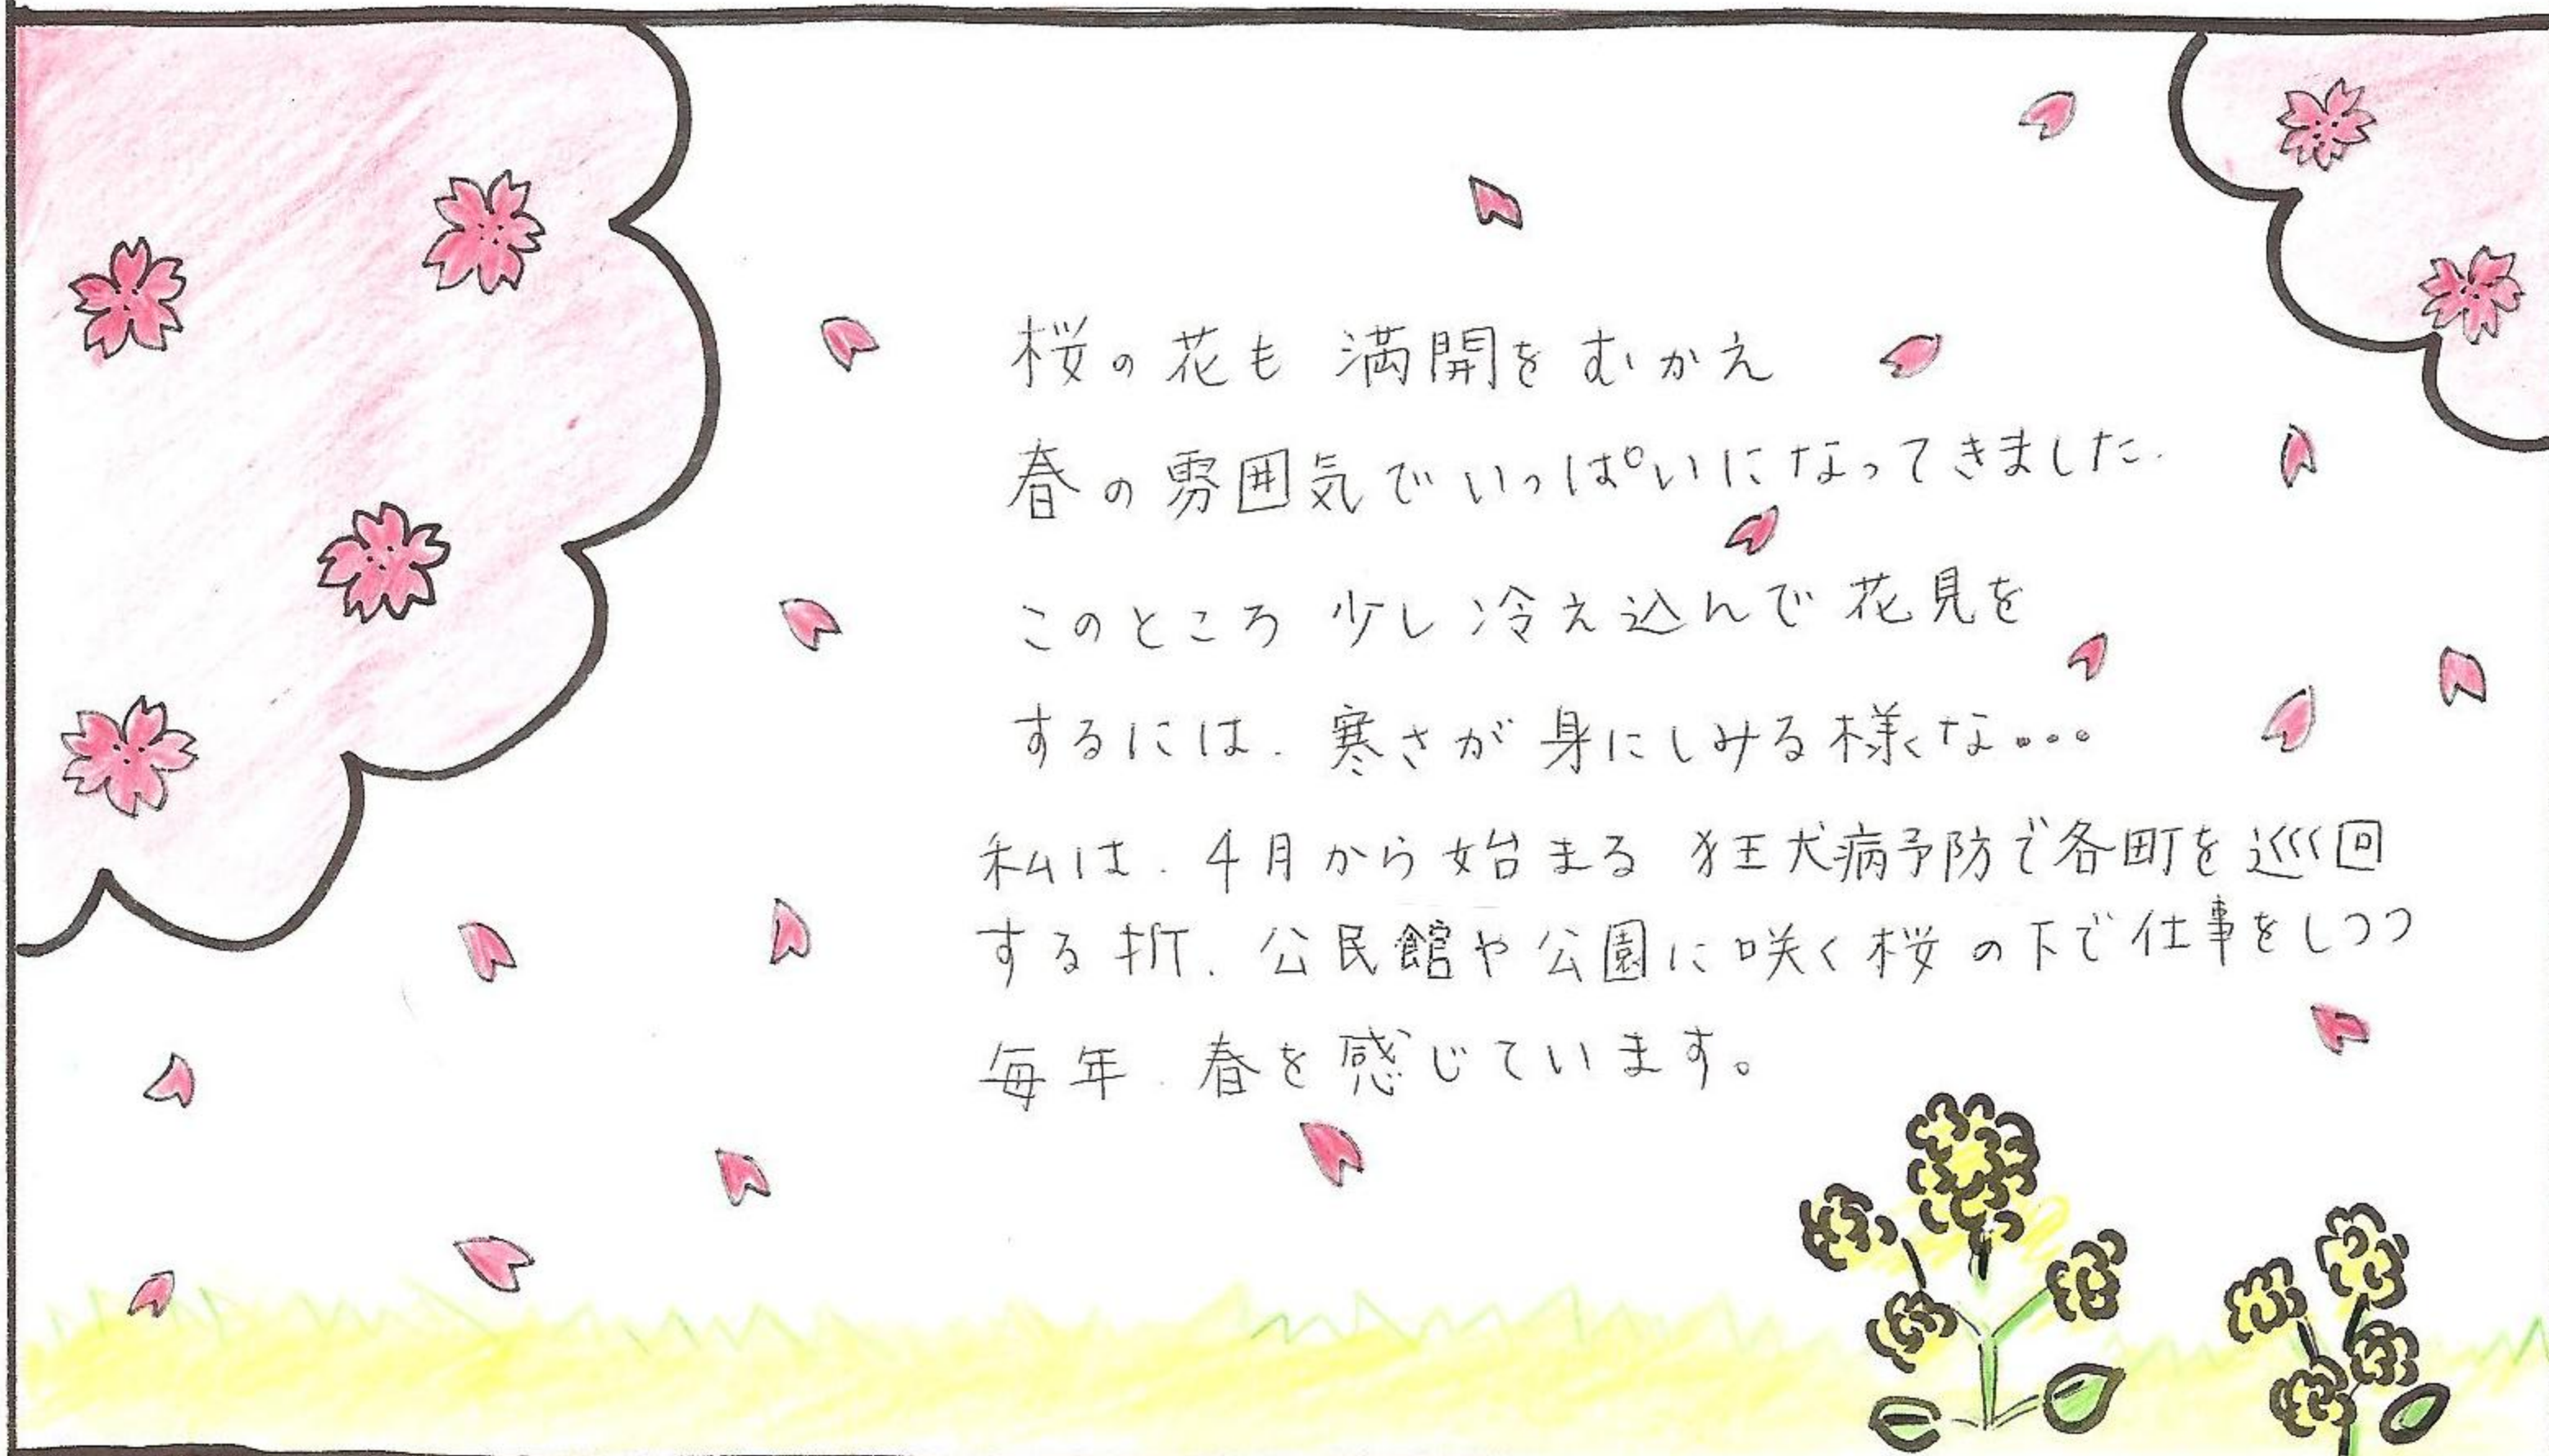 桜の花も 満開を むかえ
春の雰囲気でいっぱいになってきました.
このところ 少し冷え込んで 花見を
するには. 寒さが 身にしみる様な...
私は. 4月から始まる 狂犬病予防で各町を巡回
する折. 公民館や公園に咲く桜の下で仕事をしつつ
毎年. 春を感じています。